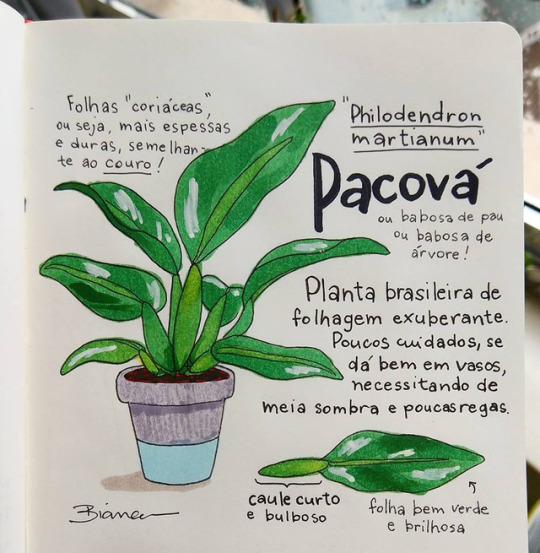 Folhas "coriáceas",
ou seja, mais espessas
e duras, semelhan-
te ao couro!
"Philodendron
martianum"
Pacová
ou babosa de pau
ou babosa de
árvore!
Planta brasileira de
folhagem exuberante.
Poucos cuidados, se
dá bem em vasos,
necessitando de
meia sombra e poucas regas.
caule curto
e bulboso
folha bem verde
e brilhosa
Bianca